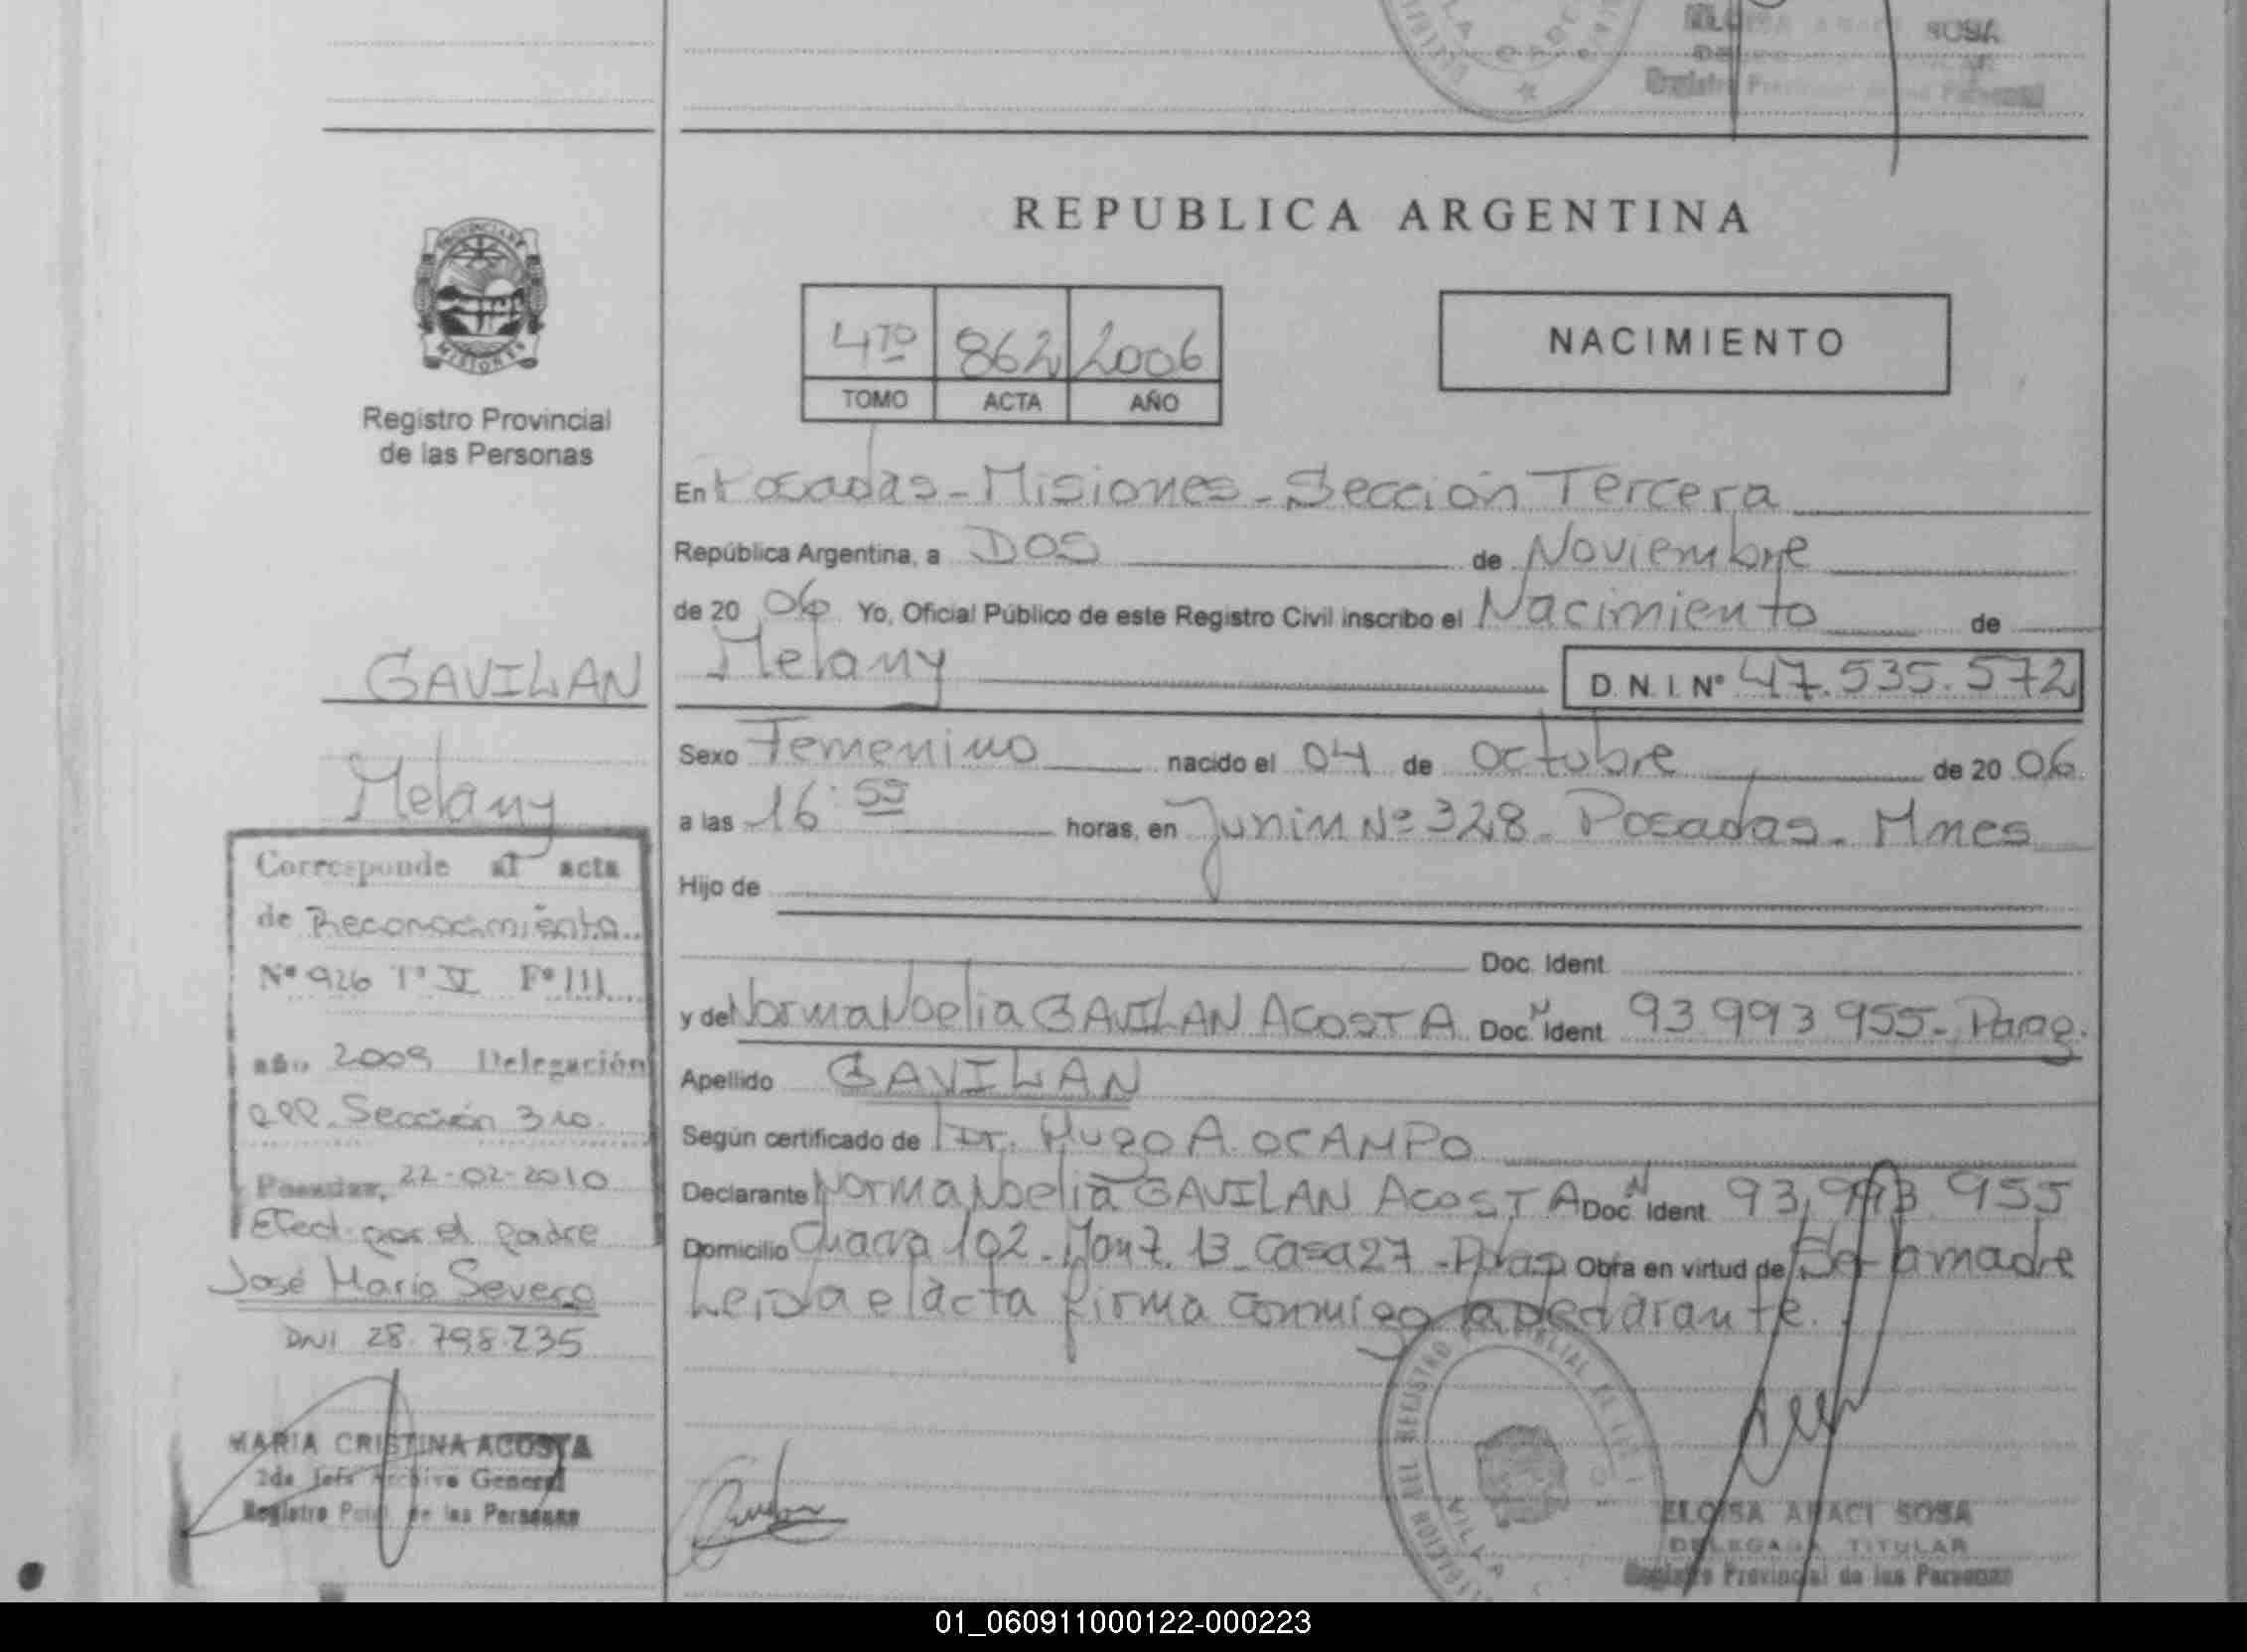 SOSA
Registro Provincial de las Personas
REPUBLICA ARGENTINA
PROVINCIA DE
MISIONES
Registro Provincial
de las Personas
4TO 862 2006
TOMO ACTA AÑO
NACIMIENTO
En Posadas - Misiones - Sección Tercera
República Argentina, a DOS de Noviembre
de 20 06 Yo, Oficial Público de este Registro Civil inscribo el Nacimiento de
Melany D.N.I. Nº 47.535.572
Sexo Femenino nacido el 04 de octubre de 20 06
a las 16:55 horas, en Junin Nº 328 - Posadas - Mnes
Hijo de
Doc. Ident.
y de Norma Noelia GAVILAN ACOSTA Doc. N Ident. 93 993 955 - Parag.
Apellido GAVILAN
Según certificado de Dr. Hugo A. OCAMPO
Declarante Norma Noelia GAVILAN ACOSTA Doc. N Ident. 93,993 955
Domicilio Chacra 102 - Manz. 13 - Casa 27 - Pdas Obra en virtud de Ser la madre
Leida el acta firma conmigo la declarante.
GAVILAN
Melany
Corresponde al acta
de Reconocimiento
Nº 926 Tº V Fº 111
año 2009 Delegación
RPP. Sección 3ra.
Posadas, 22-02-2010
Efect. por el padre
José Mario Severo
DNI 28.798.235
MARIA CRISTINA ACOSTA
2da Jefa Archivo General
Registro Pcial. de las Personas
ELOISA ARACI SOSA
DELEGADA TITULAR
Registro Provincial de las Personas
01_060911000122-000223